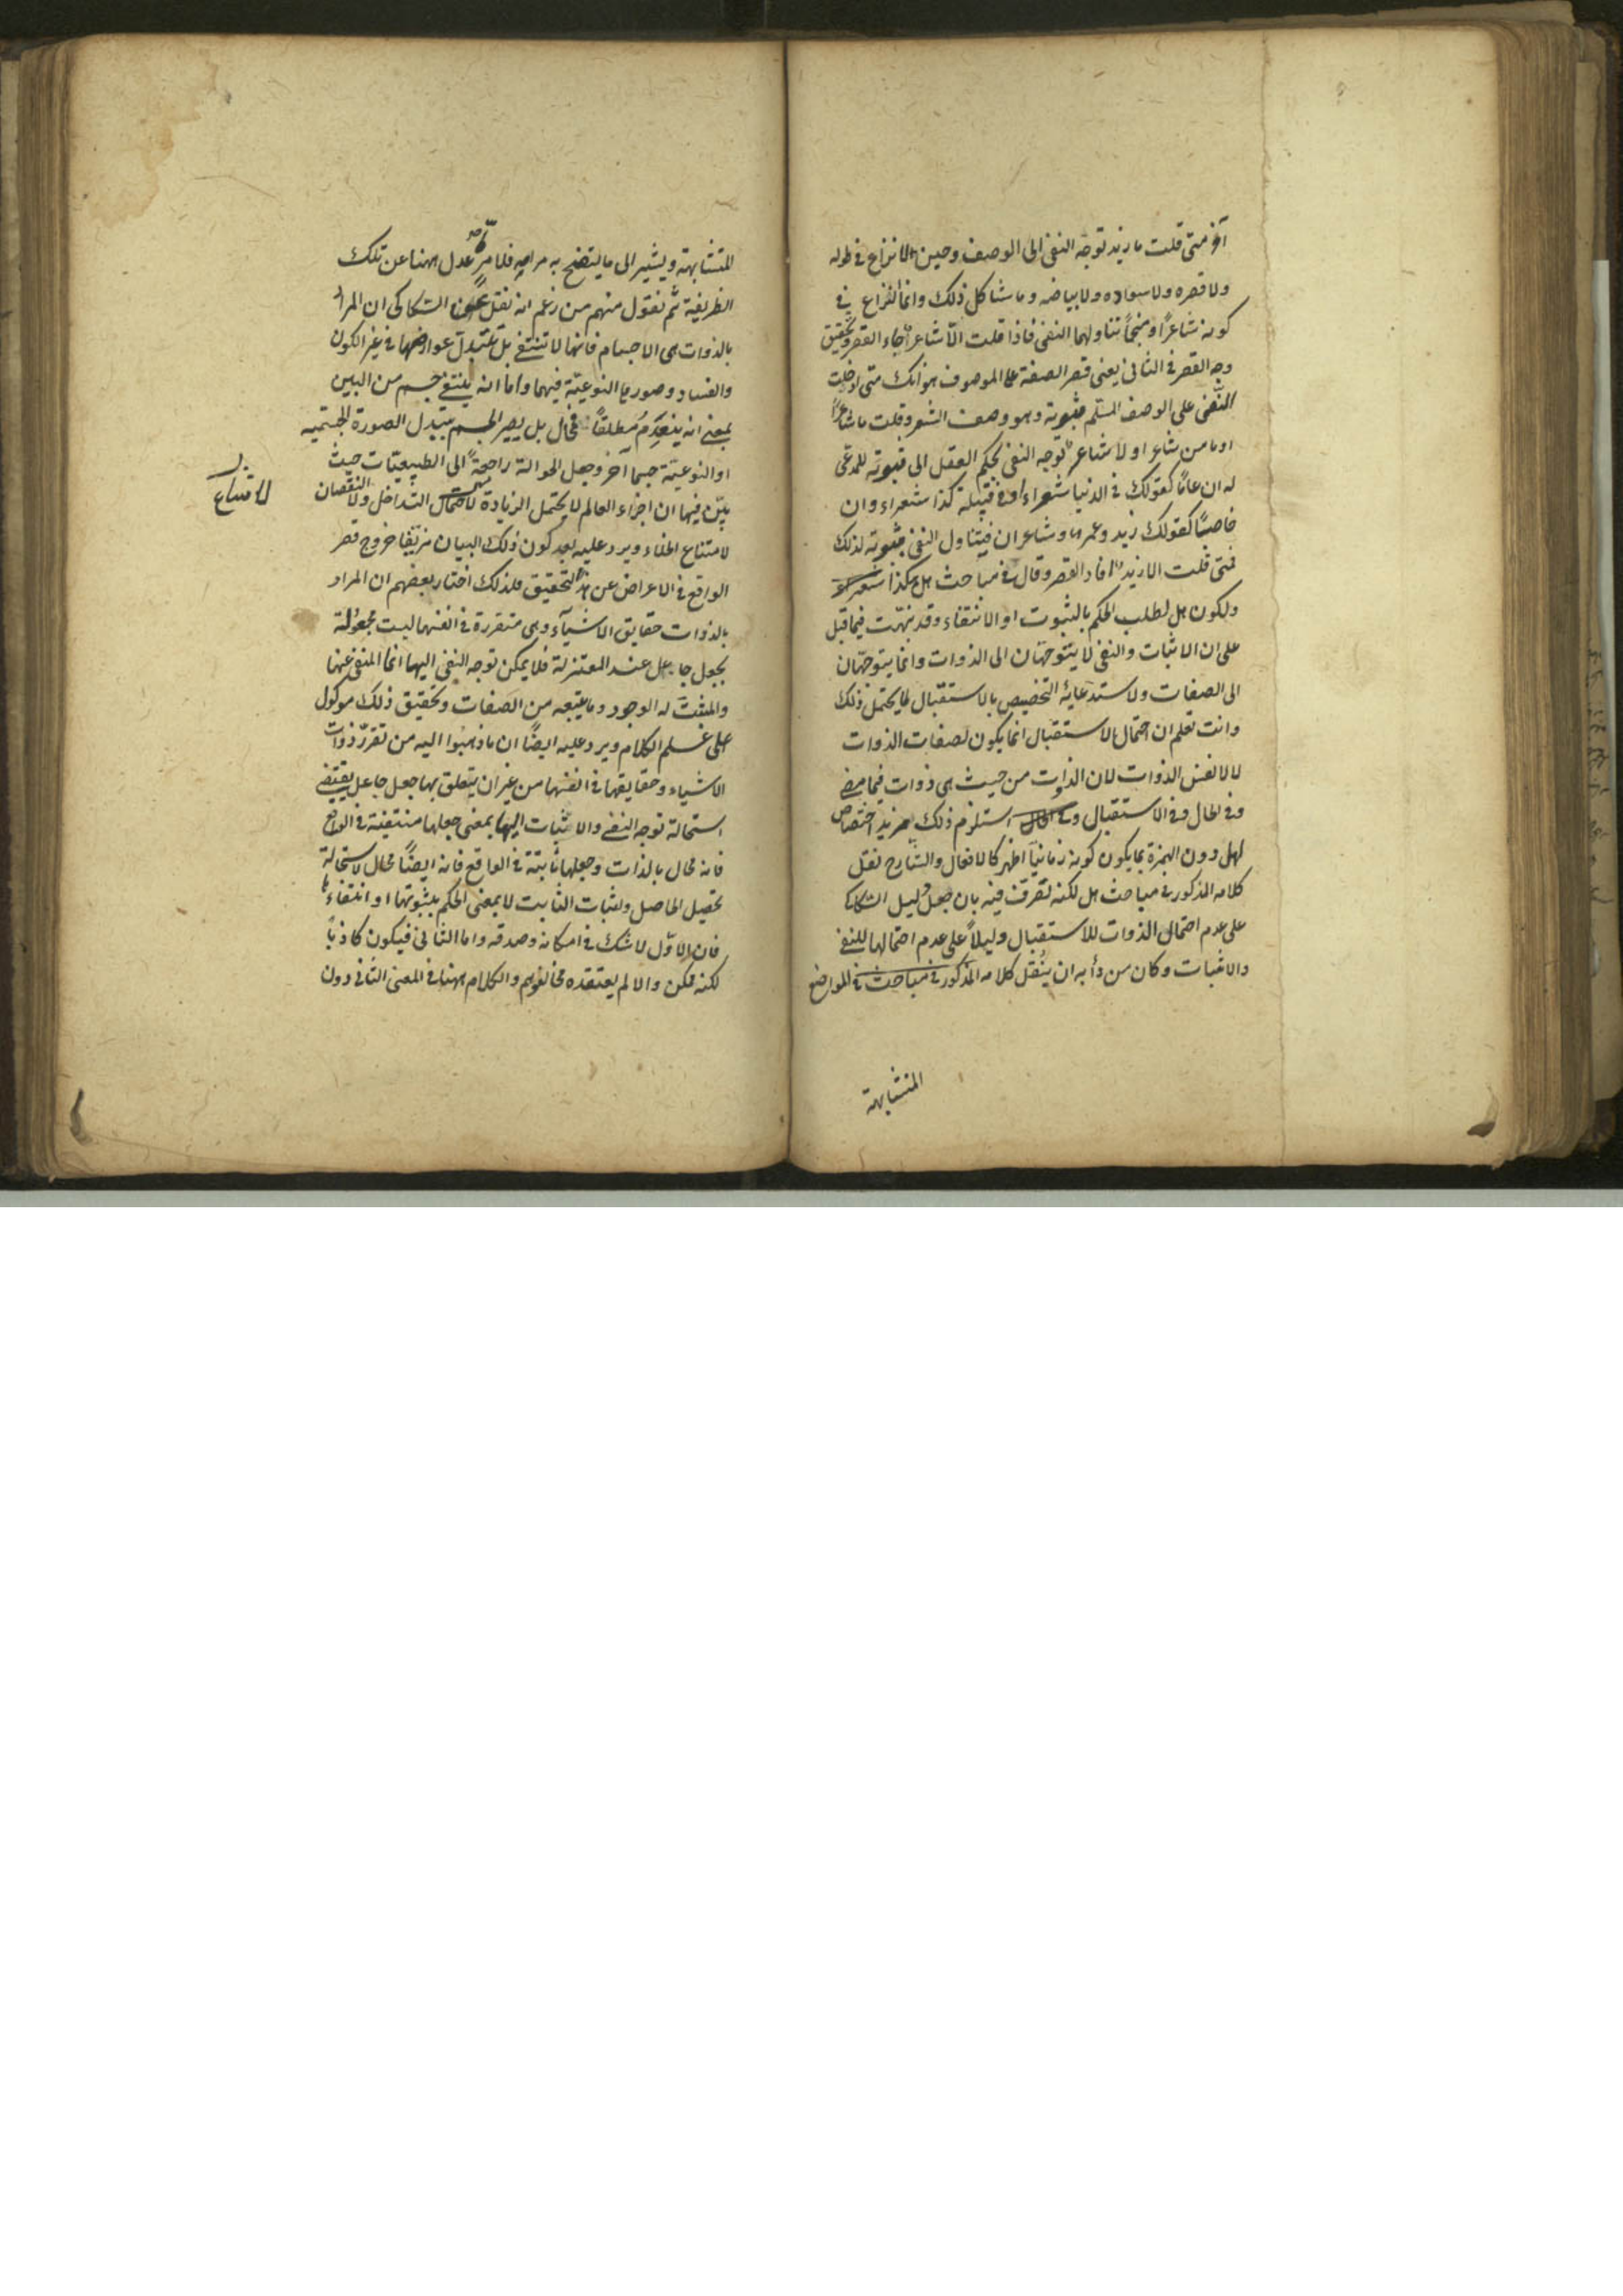 آخر متى قلت ما زيد توجه النفى الى الوصف وحين لا نزاع فى طوله
ولا قصره ولا سواده ولا بياضه وما شاكل ذلك وانما النزاع فى
كونه شاعرًا او منجمًا تناولهما النفى فاذا قلت الّا شاعر جاء القصر وتحقيق
وجه القصر فى الثانى يعنى قصر الصفة على الموصوف هو انك متى ادخلت
النفى على الوصف المسلّم ثبوته وهو وصف الشعر وقلت ما شاعرًا
او ما من شاعر او لا شاعر توجه النفى بحكم العقل الى ثبوته للمدعى
له ان عامًا كقولك فى الدنيا شعراء او فى قبيلة كذا شعراء وان
خاصًا كقولك زيد وعمرو شاعران فيتناول النفى ثبوته لذلك
فمتى قلت الا زيد افاد القصر وقال فى مباحث هل هكذا
ولكون هل لطلب الحكم بالثبوت او الانتفاء وقد نبهت فيما قبل
على ان الاثبات والنفى لا يتوجهان الى الذوات وانما يتوجهان
الى الصفات ولاستدعائه التخصيص بالاستقبال لما يحتمل ذلك
وانت تعلم ان احتمال الاستقبال انما يكون لصفات الذوات
لا لانفس الذوات لان الذوات من حيث هى ذوات فيما مضى
وفى الحال وفى الاستقبال استلزم ذلك مزيد اختصاص
لهل دون الهمزة بما يكون كونه زمانيًا اظهر كالافعال والشارح نقل
كلامه المذكور فى مباحث هل لكنه تصرف فيه بان جعل دليل السكاكى
على عدم احتمال الذوات للاستقبال دليلاً على عدم احتمالها للنفى
والاثبات وكان من دأبه ان ينقل كلامه المذكور فى مباحث فى المواضع
المتشابهة
المتشابهة ويشير الى ما يتضح به مرامه فلامر ما عدل ههنا عن تلك
الطريقة ثم نقول منهم من زعم انه نقل عن السكاكى ان المراد
بالذوات هى الاجسام فانها لا تنتفى بل تتبدل عوارضها فى غير الكون
والفساد وصورها النوعية فيهما واما انه ينتفى جسم من البين
بمعنى انه ينعدم مطلقًا فمحال بل يصير الجسم بتبدل الصورة الجسميه
او النوعية جسما آخر وجعل الحوالة راجعة الى الطبيعيات حيث
بيّن فيها ان اجزاء العالم لا يحتمل الزيادة التداخل ولا النقصان
لامتناع
لامتناع الخلاء ويرد عليه بعد كون ذلك البيان مزيفا خروج قصر
الواقع فى الاعراض عن هذا التحقيق فلذلك اختار بعضهم ان المراد
بالذوات حقايق الاشيآء وهى متقررة فى انفسها ليست مجعولة
بجعل جاعل عند المعتزلة فلا يمكن توجه النفى اليها انما المنفى عنها
والمثبت له الوجود وما يتبعه من الصفات وتحقيق ذلك موكول
على علم الكلام ويرد عليه ايضًا ان ما ذهبوا اليه من تقرر ذوات
الاشياء وحقايقها فى انفسها من غير ان يتعلق بها جعل جاعل يقتضى
استحالة توجه النفى والاثبات اليها بمعنى جعلها منتفية فى الواقع
فانه محال بالذات وجعلها ثابتة فى الواقع فانه ايضًا محال لاستحالة
تحصيل الحاصل واثبات الثابت لا بمعنى الحكم بثبوتها او انتفاءها
فان الاوّل لا شك فى امكانه وصدقه واما الثانى فيكون كاذبًا
لكنه ممكن والا لم يعتقده مخالفوهم والكلام ههنا فى المعنى الثانى دون